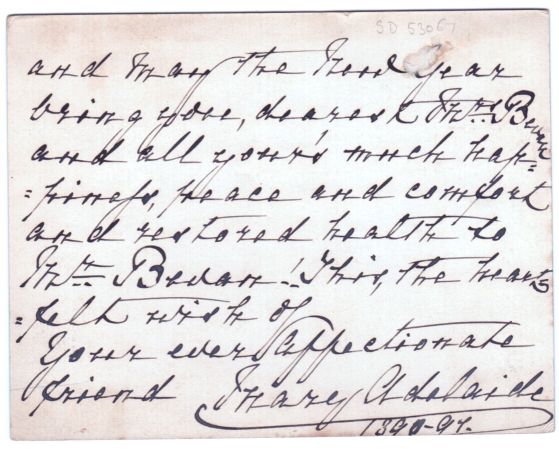 SD 53067
and May the New Year
bring you, dearest Mrs. Bevan
and all your's much hap=
=piness, peace and comfort
and restored health to
Mr. Bevan-! This, the heart
=felt wish of
Your ever affectionate
friend Mary Adelaide
1890-91.